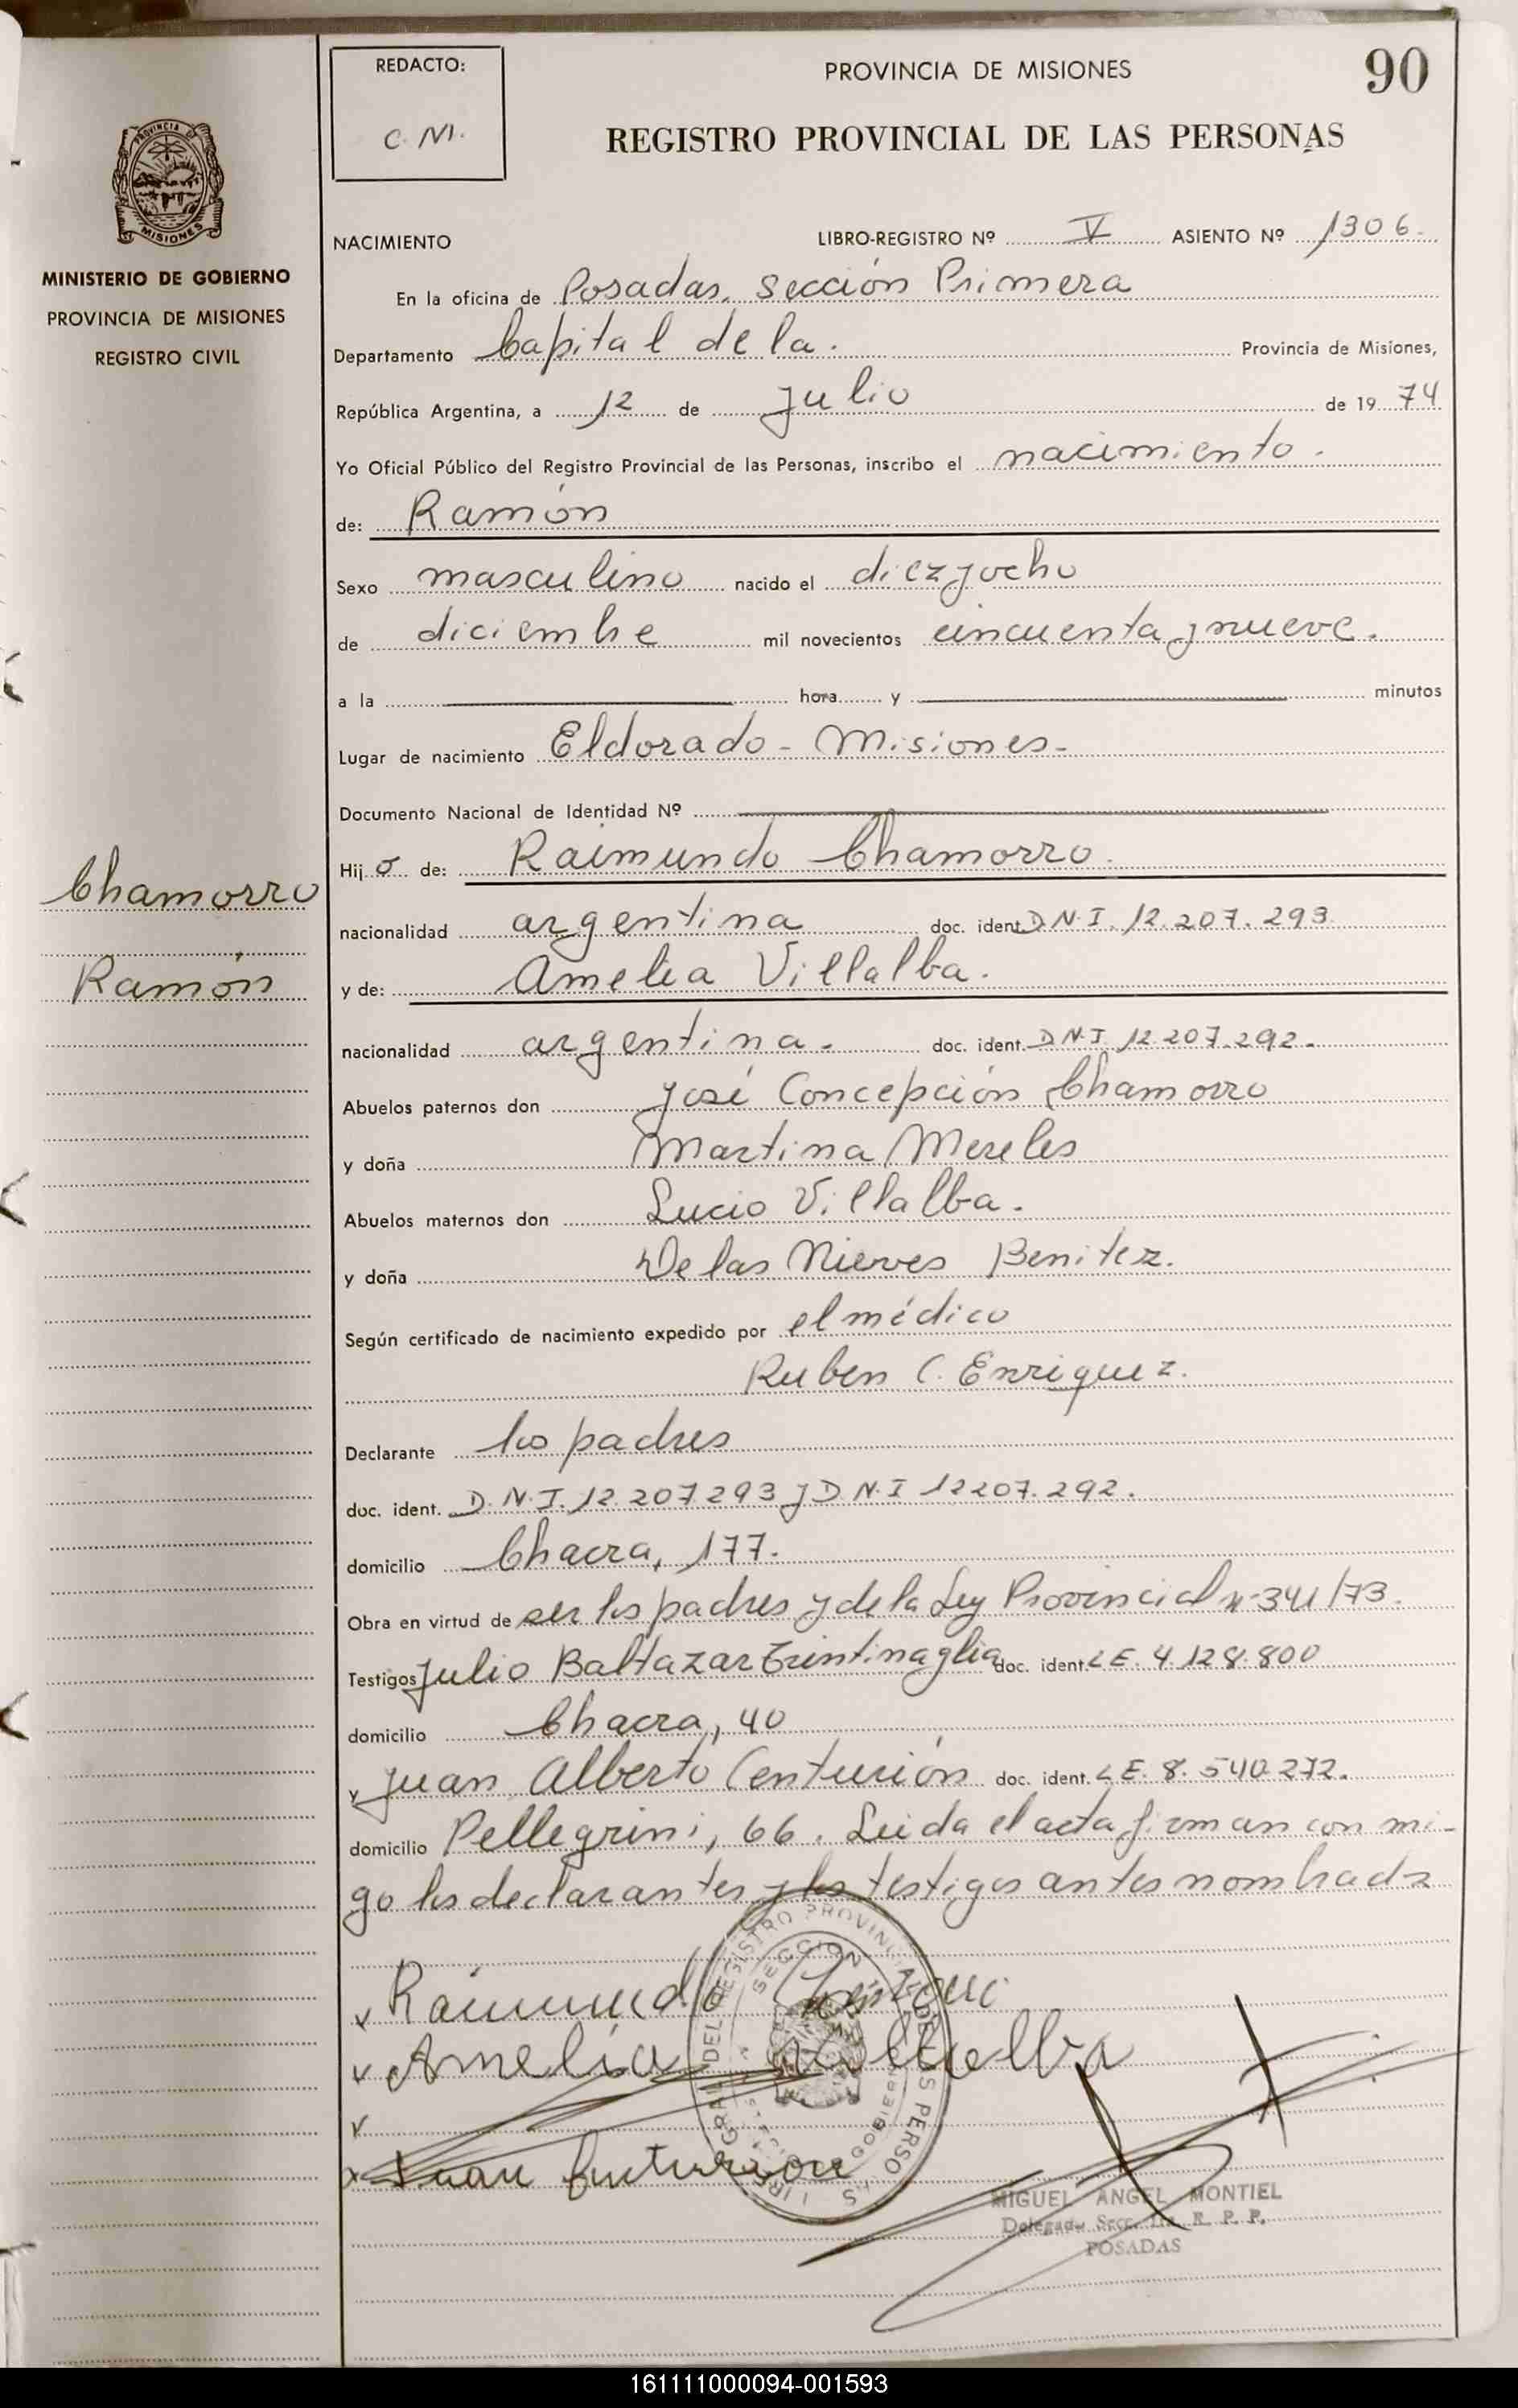 REDACTO:
C. M.
PROVINCIA DE MISIONES
90
REGISTRO PROVINCIAL DE LAS PERSONAS
PROVINCIA DE
MISIONES
MINISTERIO DE GOBIERNO
PROVINCIA DE MISIONES
REGISTRO CIVIL
NACIMIENTO LIBRO-REGISTRO Nº V ASIENTO Nº 1306.
En la oficina de Posadas, sección Primera
Departamento Capital de la. Provincia de Misiones,
República Argentina, a 12 de julio de 1974
Yo Oficial Público del Registro Provincial de las Personas, inscribo el nacimiento.
de: Ramón
Sexo masculino nacido el diez y ocho
de diciembre mil novecientos cincuenta y nueve.
a la hora y minutos
Lugar de nacimiento Eldorado - Misiones -
Documento Nacional de Identidad Nº
Hijo de: Raimundo Chamorro.
Chamorro
nacionalidad argentina doc. ident D.N.I. 12.207.293
Ramón
y de: Amelia Villalba.
nacionalidad argentina. doc. ident. D.N.I. 12.207.292.
Abuelos paternos don José Concepción Chamorro
y doña Martina Mereles
Abuelos maternos don Lucio Villalba.
y doña De las Nieves Benitez.
Según certificado de nacimiento expedido por el médico
Ruben C. Enriquez.
Declarante los padres
doc. ident. D.N.I. 12.207293 y D N.I 12207.292.
domicilio Chacra, 177.
Obra en virtud de ser los padres y de la Ley Provincial Nº 341/73.
Testigos Julio Baltazar Trintinaglia doc. ident L E. 4.128.800
domicilio Chacra, 40
y Juan Alberto Centurión doc. ident. L E. 8.540.272.
domicilio Pellegrini, 66. Leida el acta firman con mi-
go los declarantes y los testigos antes nombrads
Raimundo
Amelia Villalba
Juan Centurion
MIGUEL ANGEL MONTIEL
Delegado Secc. 1ra. R. P. P.
POSADAS
161111000094-001593